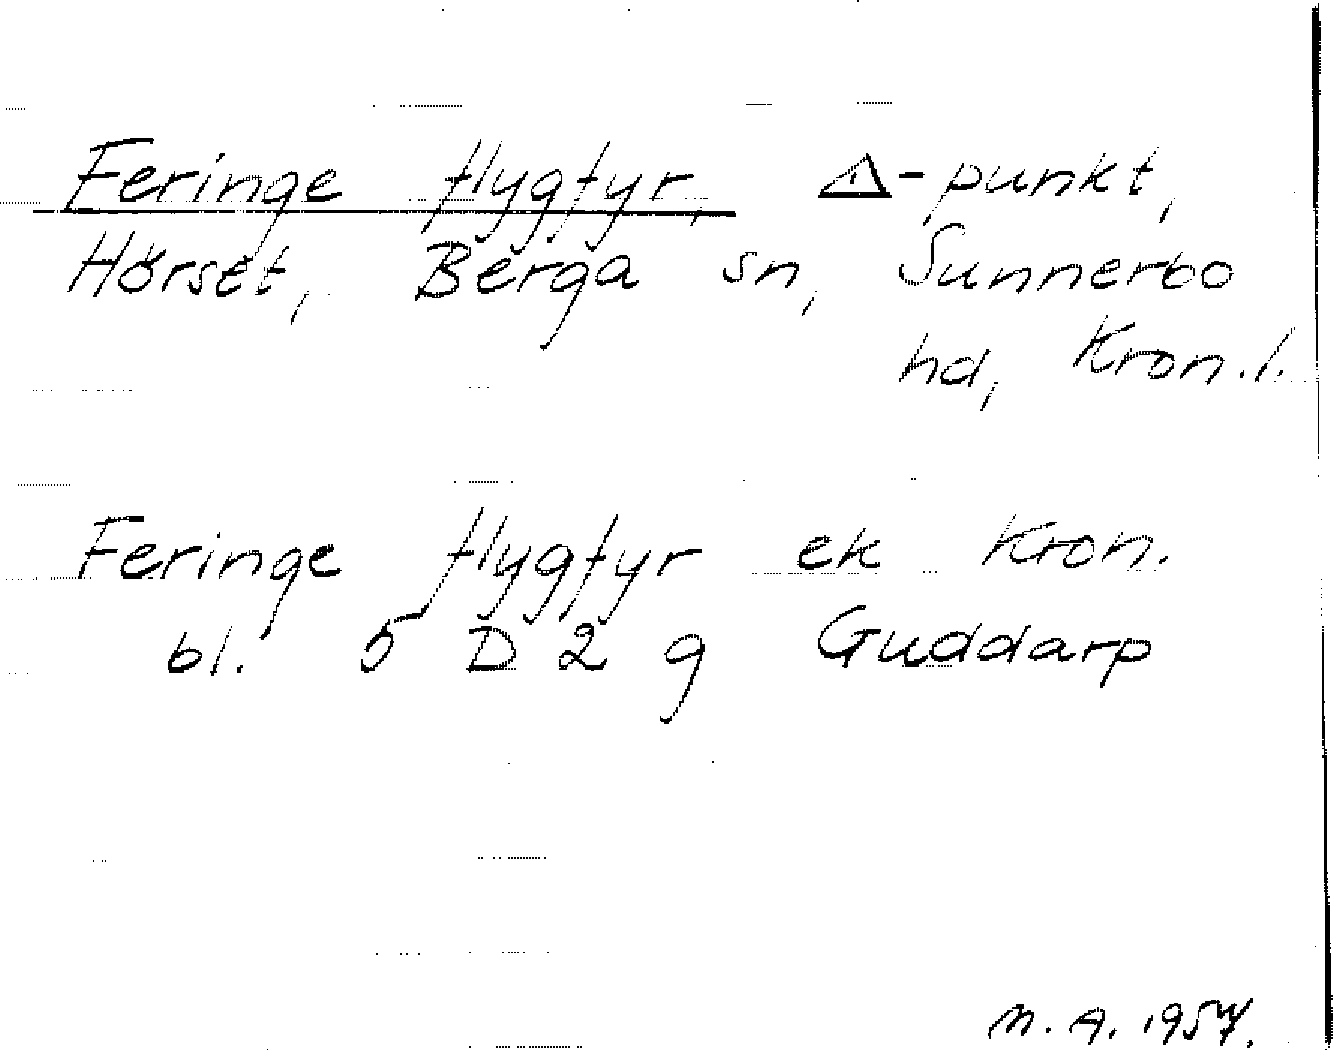 Feringe flygfyr, △-punkt,
Hörset, Berga sn, Sunnerbo
hd, Kron.l.
Feringe flygfyr ek Kron.
bl. 5 D 2 g Guddarp
M. A. 1957.